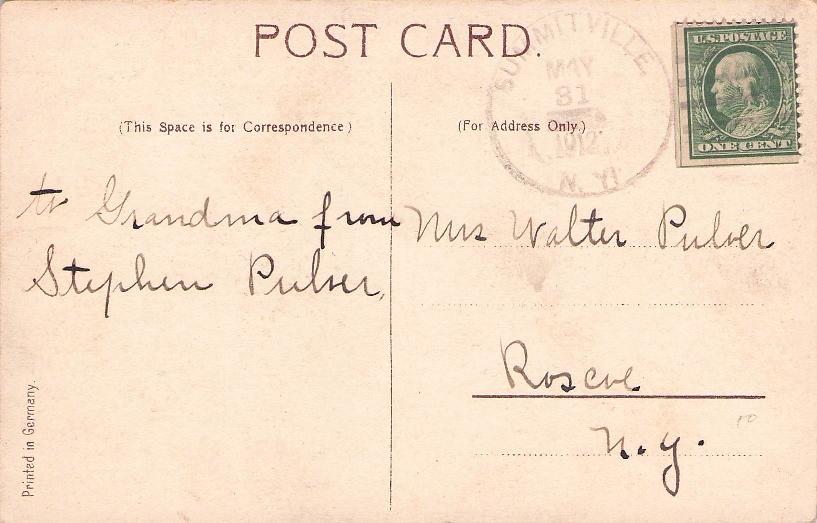 POST CARD.
SUMMITVILLE,
MAY
31
1912
N.Y.
U.S. POSTAGE
ONE CENT
(This Space is for Correspondence)
(For Address Only.)
to Grandma from
Stephen Pulver,
Mrs Walter Pulver
Roscoe
N.Y.
10
Printed in Germany.